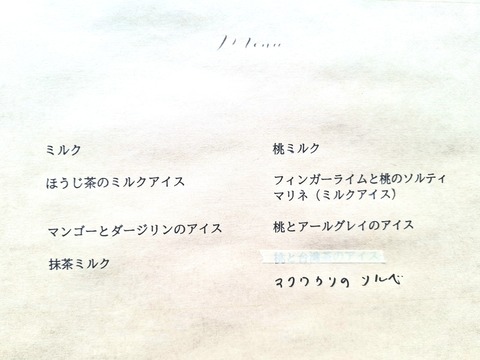 Menu
ミルク
ほうじ茶のミルクアイス
マンゴーとダージリンのアイス
抹茶ミルク
桃ミルク
フィンガーライムと桃のソルティ
マリネ（ミルクアイス）
桃とアールグレイのアイス
桃と台湾茶のアイス
マクワウリの ソルベ